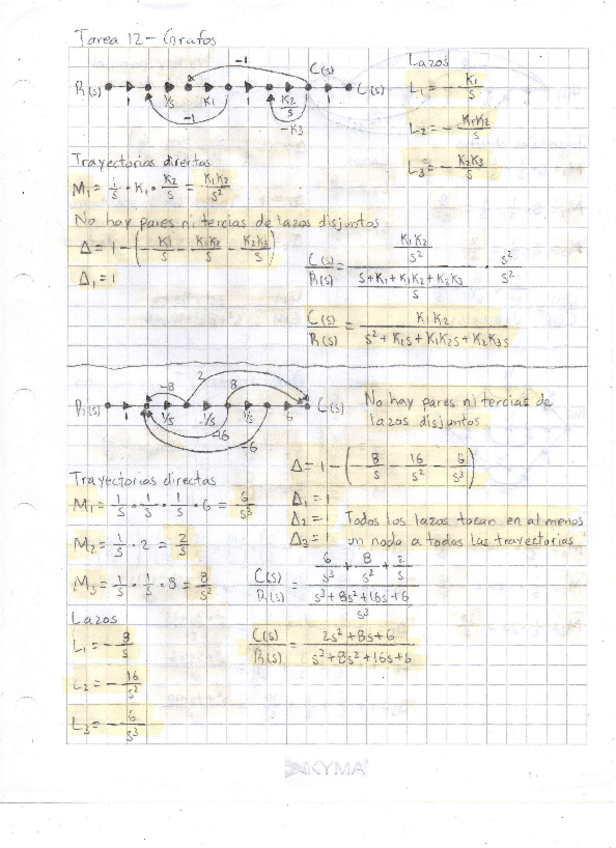 Tarea 12 - Grafos
-1
C(s)
R(s) 1 1/s K1 1 K2/s 1 C(s)
-1 -K3
Lazos
L1 = - K1/s
L2 = - K1K2/s
L3 = - K2K3/s
Trayectorias directas
M1 = 1/s • K1 • K2/s = K1K2/s²
No hay pares ni tercias de lazos disjuntos
Δ = 1 - (- K1/s - K1K2/s - K2K3/s)
Δ1 = 1
C(s)/R(s) = (K1K2/s²)/((s+K1+K1K2+K2K3)/s) • s²/s²
C(s)/R(s) = K1K2/(s²+K1s+K1K2s+K2K3s)
-8 2 8
R(s) 1 1/s 1/s 1/s 6 C(s)
-16
-6
No hay pares ni tercias de
lazos disjuntos
Δ = 1 - (- 8/s - 16/s² - 6/s³)
Trayectorias directas
M1 = 1/s • 1/s • 1/s • 6 = 6/s³
M2 = 1/s • 2 = 2/s
M3 = 1/s • 1/s • 8 = 8/s²
Δ1 = 1
Δ2 = 1 Todos los lazos tocan en al menos
Δ3 = 1 un nodo a todas las trayectorias
C(s)/R(s) = (6/s³ + 8/s² + 2/s)/((s³+8s²+16s+6)/s³)
Lazos
L1 = - 8/s
L2 = - 16/s²
L3 = - 6/s³
C(s)/R(s) = (2s²+8s+6)/(s³+8s²+16s+6)
KYMA